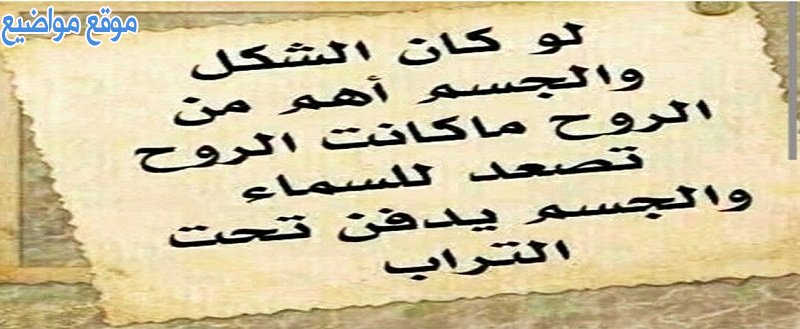 موقع مواضيع
لو كان الشكل
والجسم أهم من
الروح ماكانت الروح
تصعد للسماء
والجسم يدفن تحت
التراب